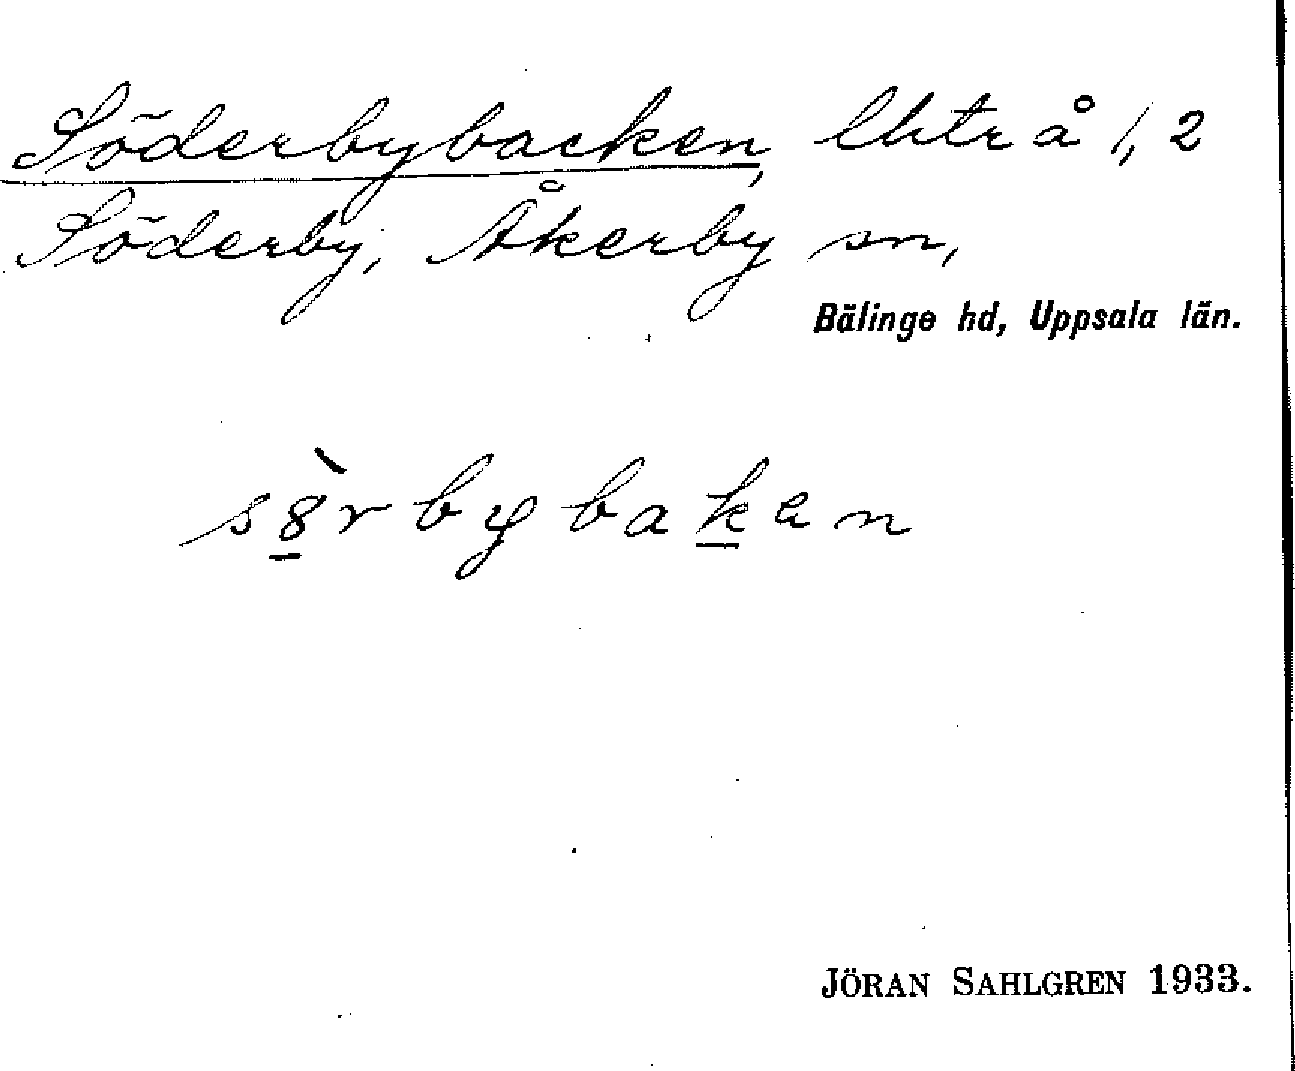 Söderbybacken, lhtr å 1, 2
Söderby, Åkerby sn,
Bälinge hd, Uppsala län.
sö̀rbybaken
JÖRAN SAHLGREN 1933.